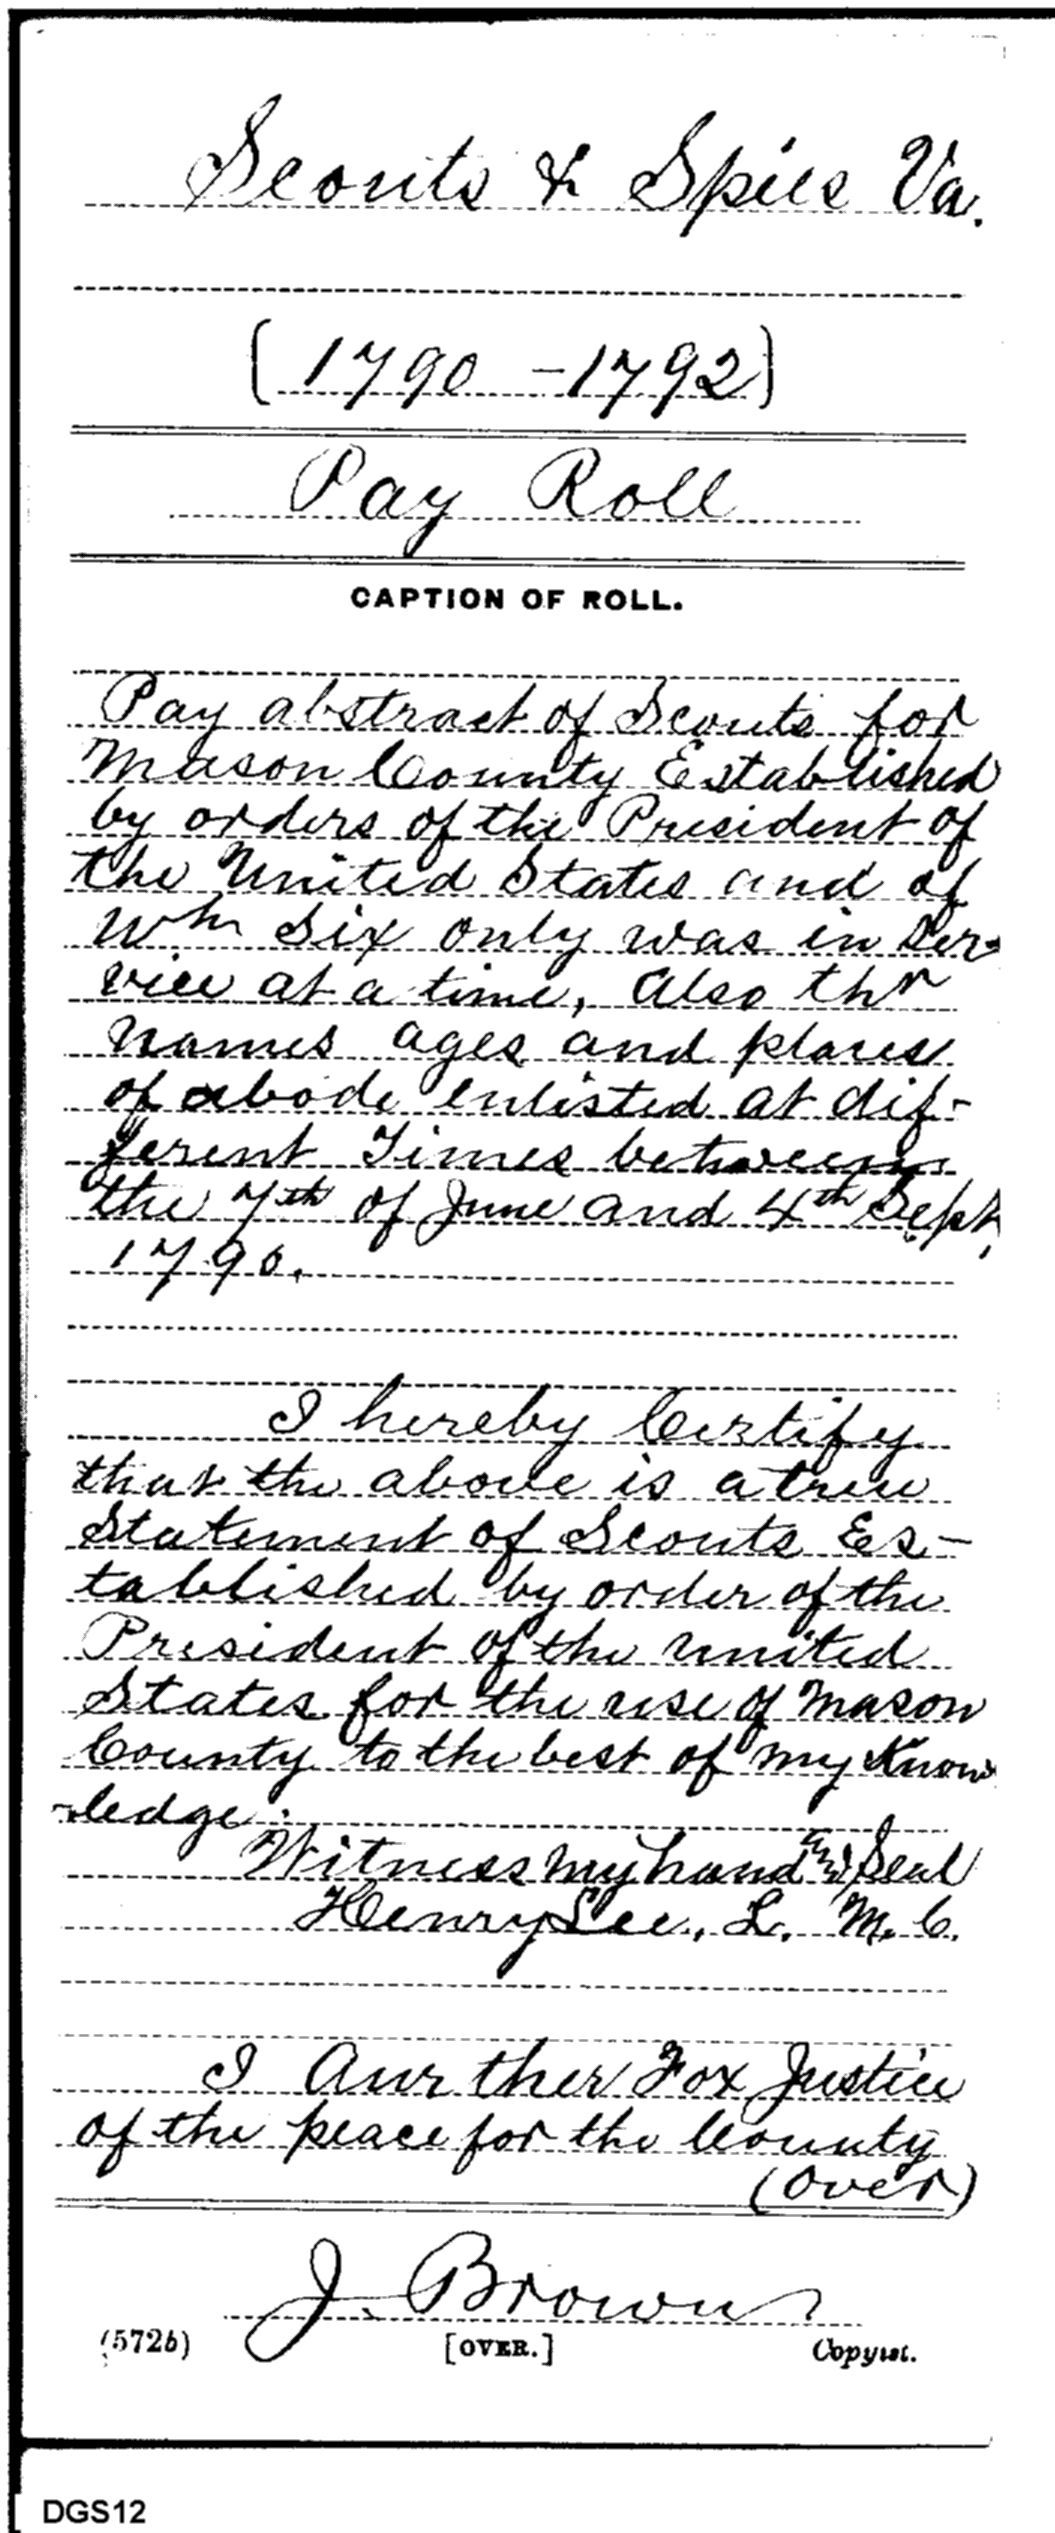 Scouts & Spies Va.
(1790 - 1792)
Pay Roll
CAPTION OF ROLL.
Pay abstract of Scouts for
Mason County Established
by orders of the President of
the United States and of
Wh Six only was in Ser-
vice at a time, Also thr
Names ages and places
of abode enlisted at dif-
ferent Times between
the 7th of June and 4th Sept,
1790.
I hereby Certify
that the above is a true
Statement of Scouts Es-
tablished by order of the
President of the united
States for the use of Mason
County to the best of my Know
-ledge.
Witness my hand and Seal
Henry Lee, L. M. C.
I Aurther Fox Justice
of the peace for the County
(over)
J. Brown
(572b) [OVER.] Copyist.
DGS12